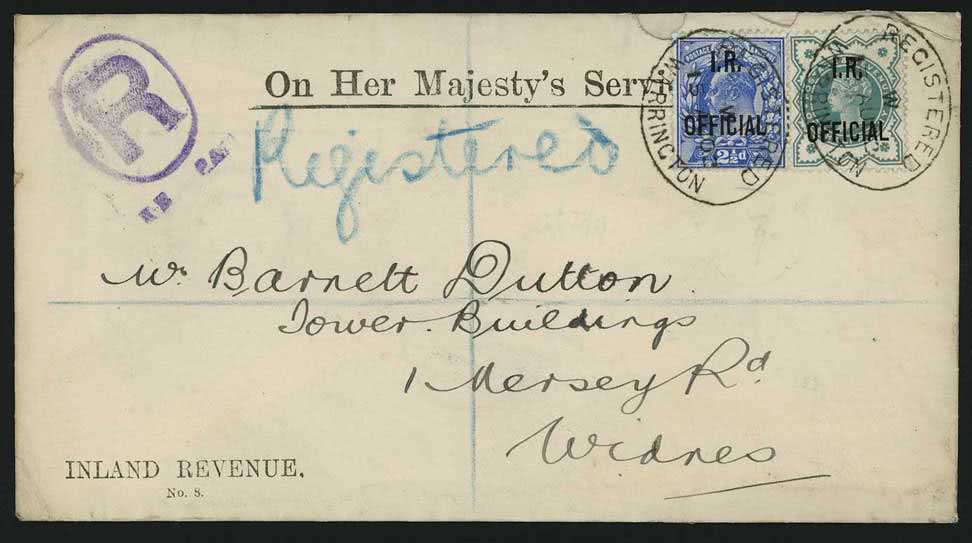 R
On Her Majesty's Serv
I.R.
OFFICIAL
2½d
I.R.
OFFICIAL
REGISTERED
WARRINGTON
REGISTERED
Registered
Mr. Barnett Dutton
Tower Buildings
1 Mersey Rd
Widnes
INLAND REVENUE.
No. 8.